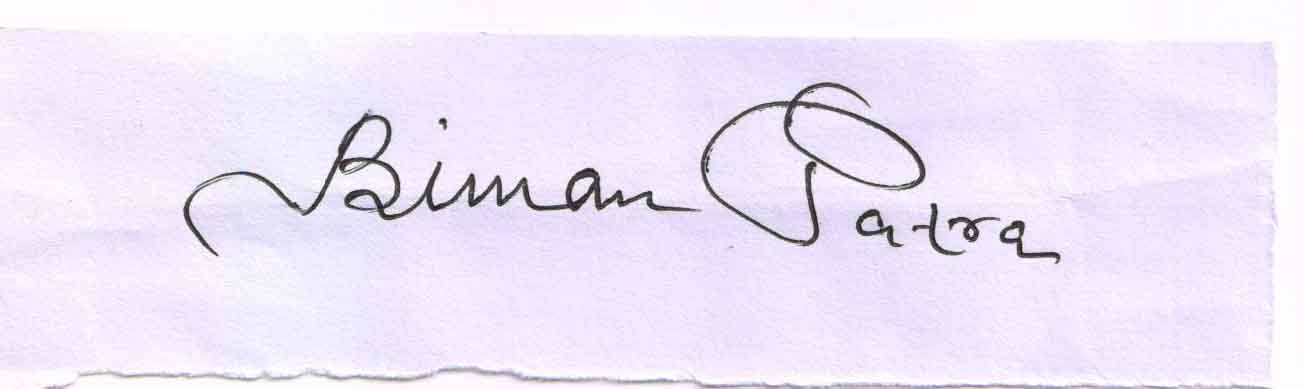 Biman Patra